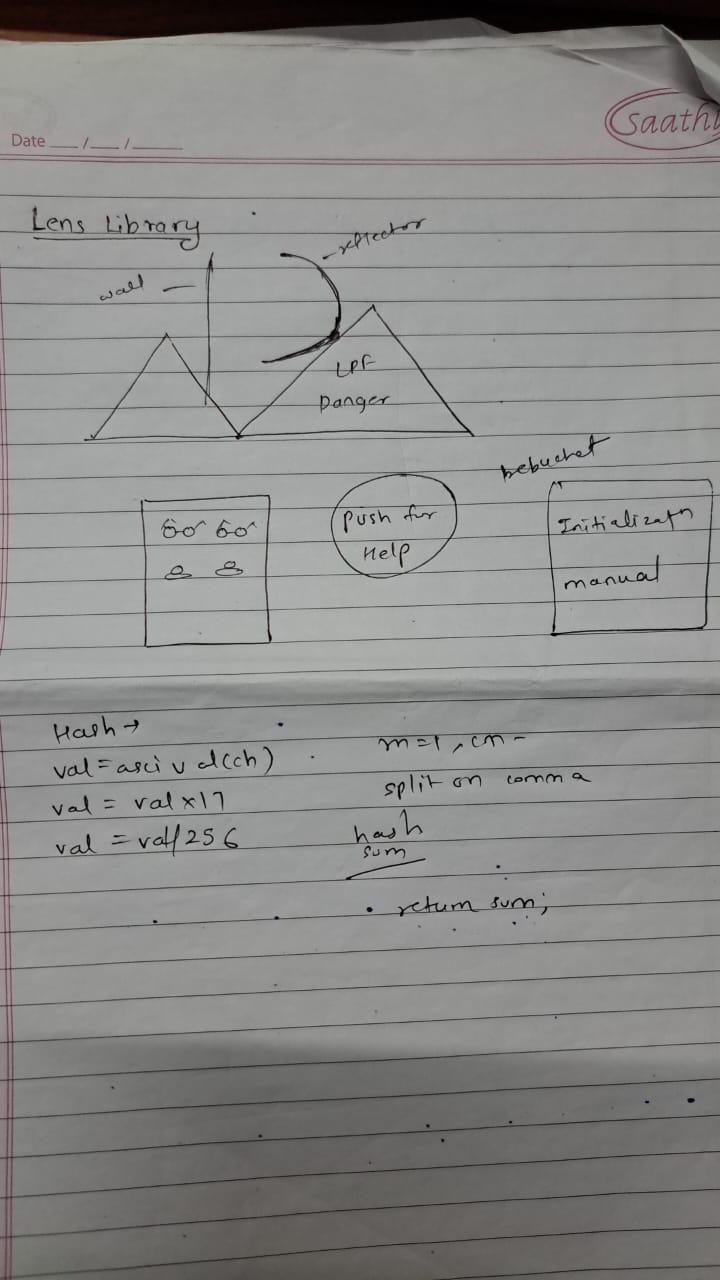 Date __/__/____
Saathi
Lens Library
reflector
wall
LPF
Danger
trebuchet
Push for
Help
Initializatn
manual
Hash →
val = asci val(ch)
val = val x17
val = val%256
m=1, cm-
split on comma
hash
sum
return sum;